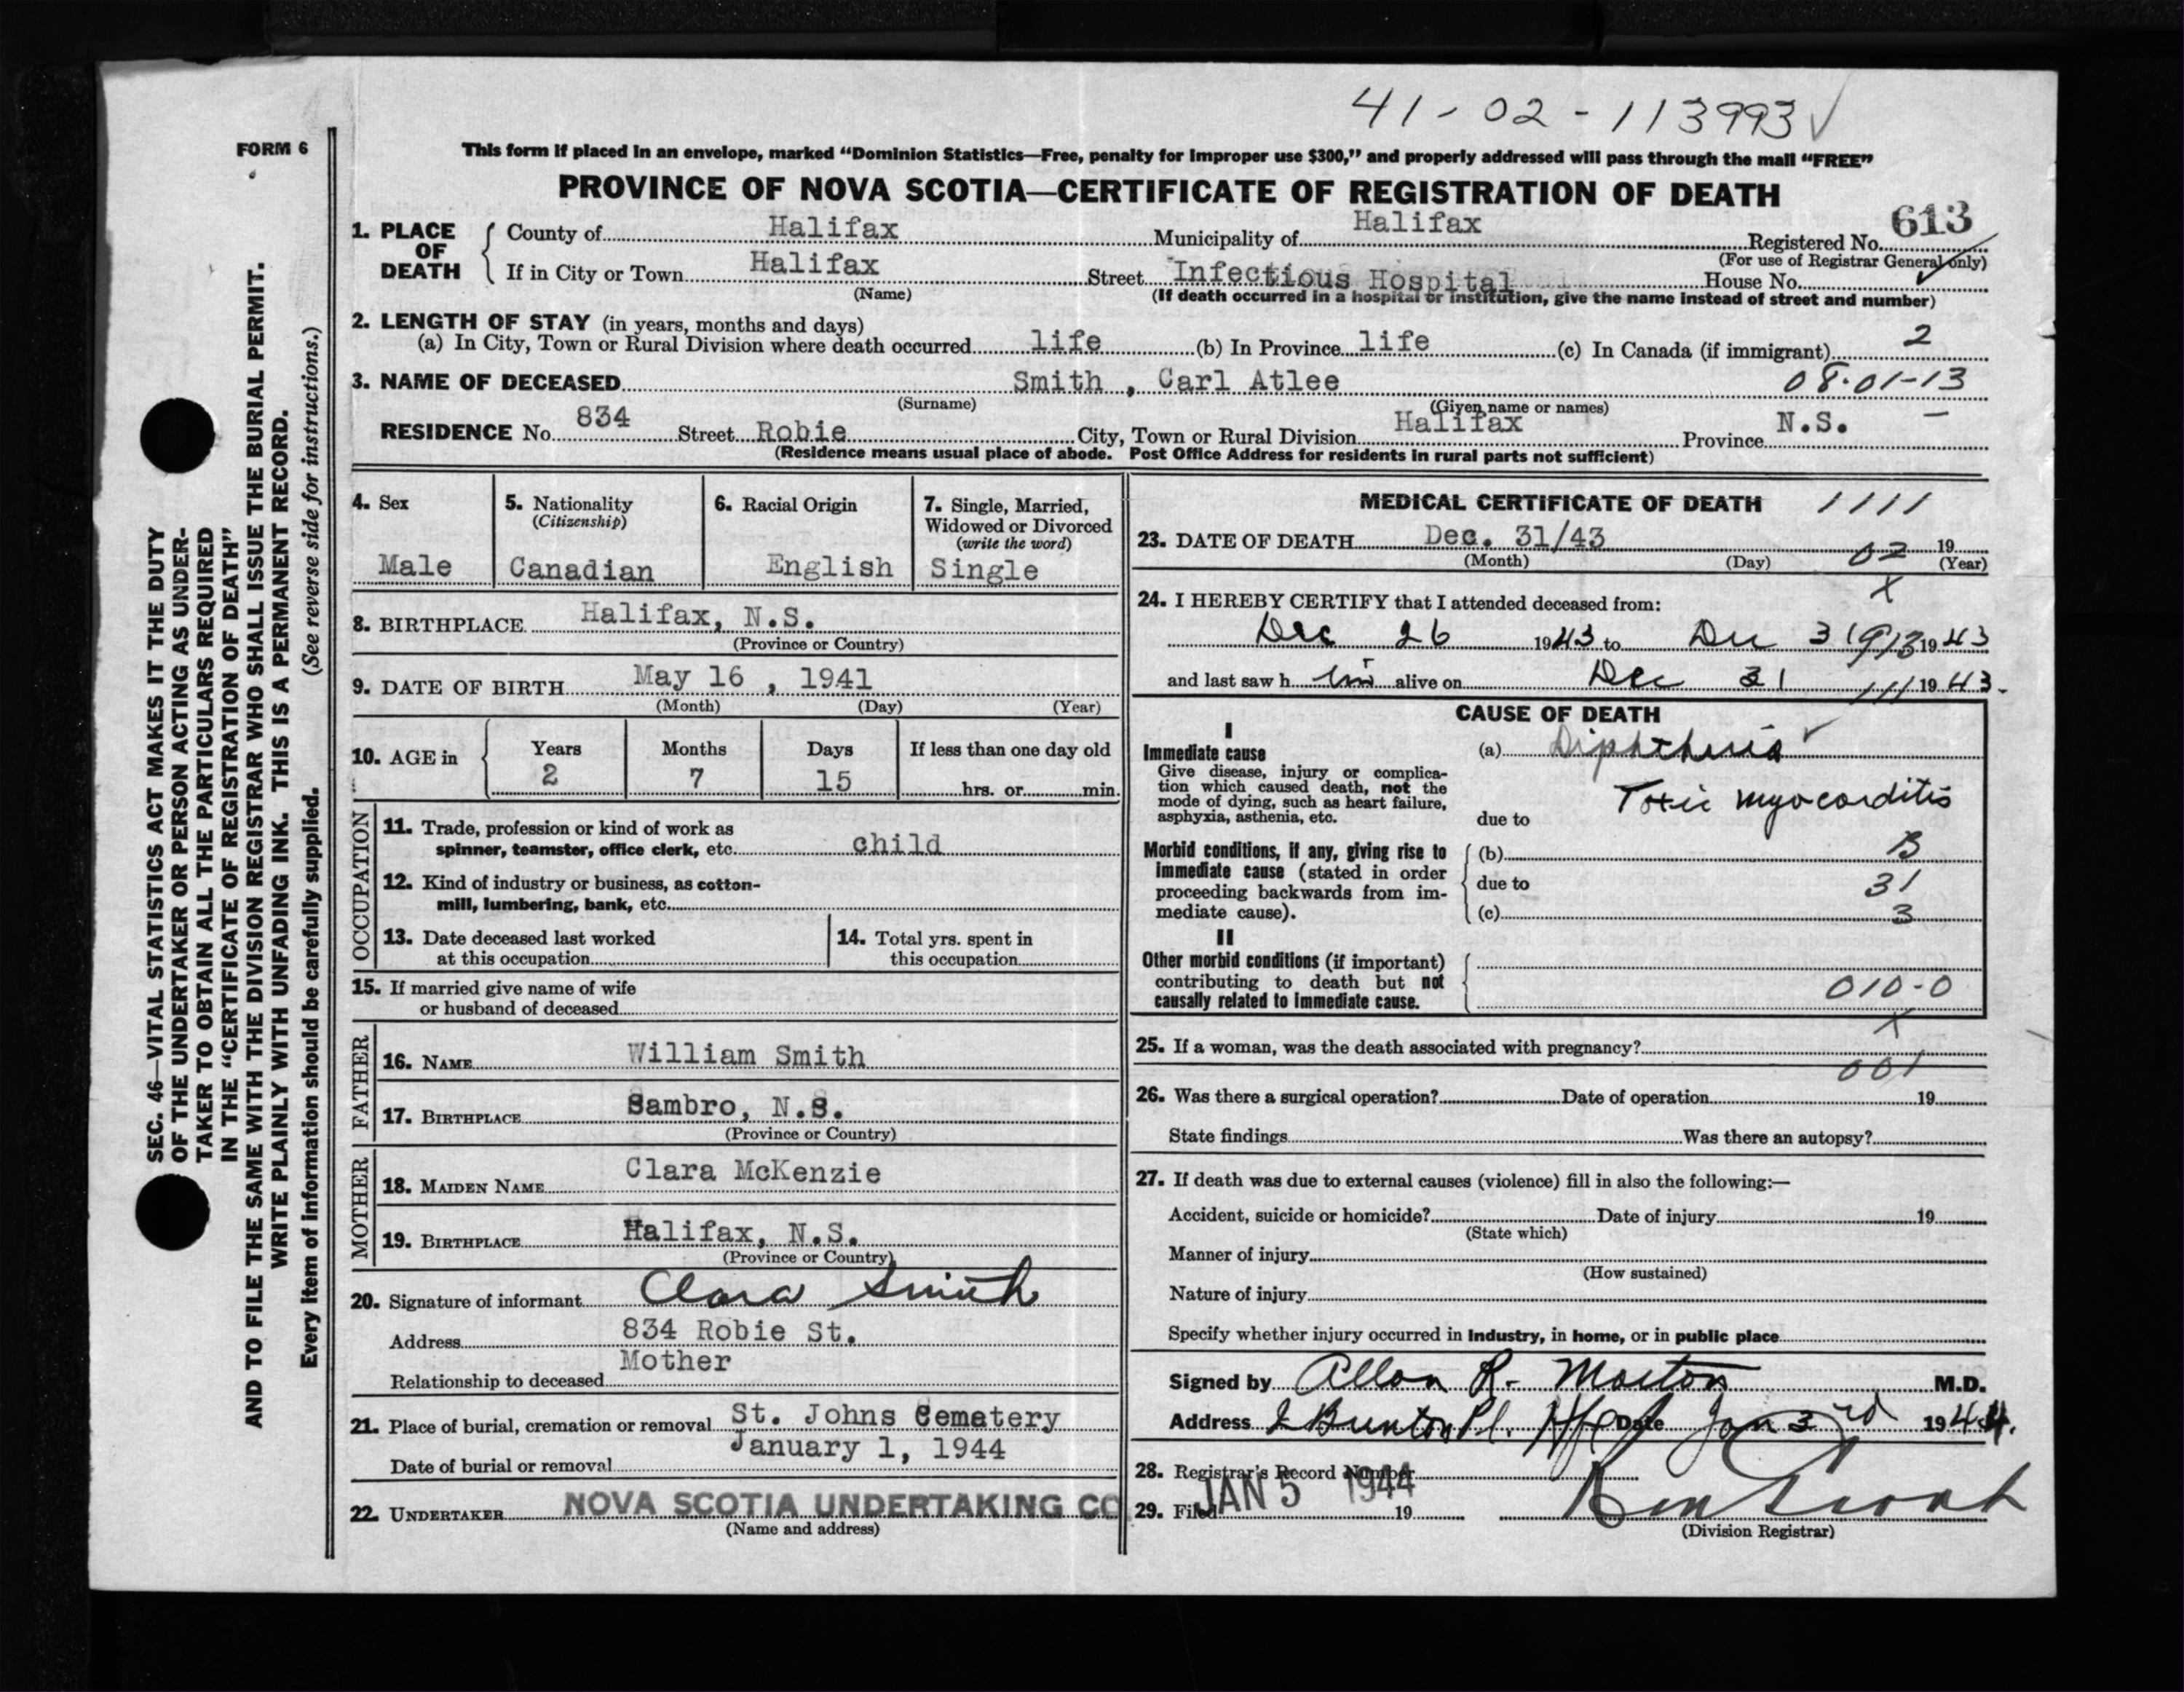 41-02-113993 ✓
FORM 6
This form if placed in an envelope, marked “Dominion Statistics—Free, penalty for improper use $300,” and properly addressed will pass through the mail “FREE”
PROVINCE OF NOVA SCOTIA—CERTIFICATE OF REGISTRATION OF DEATH
613
1. PLACE OF DEATH { County of Halifax Municipality of Halifax Registered No.
(For use of Registrar General only)
If in City or Town Halifax Street Infectious Hospital House No.
(Name) (If death occurred in a hospital or institution, give the name instead of street and number)
2. LENGTH OF STAY (in years, months and days)
(a) In City, Town or Rural Division where death occurred life (b) In Province life (c) In Canada (if immigrant) 2
3. NAME OF DECEASED Smith , Carl Atlee 08.01-13
(Surname) (Given name or names)
RESIDENCE No. 834 Street Robie City, Town or Rural Division Halifax Province N.S. —
(Residence means usual place of abode. Post Office Address for residents in rural parts not sufficient)
4. Sex
Male
5. Nationality
(Citizenship)
Canadian
6. Racial Origin
English
7. Single, Married,
Widowed or Divorced
(write the word)
Single
8. BIRTHPLACE Halifax, N.S.
(Province or Country)
9. DATE OF BIRTH May 16 , 1941
(Month) (Day) (Year)
10. AGE in { Years Months Days If less than one day old
2 7 15 hrs. or min.
OCCUPATION
11. Trade, profession or kind of work as
spinner, teamster, office clerk, etc. child
12. Kind of industry or business, as cotton-
mill, lumbering, bank, etc.
13. Date deceased last worked
at this occupation
14. Total yrs. spent in
this occupation
15. If married give name of wife
or husband of deceased
FATHER
16. NAME William Smith
17. BIRTHPLACE Sambro, N.S.
(Province or Country)
MOTHER
18. MAIDEN NAME Clara McKenzie
19. BIRTHPLACE Halifax, N.S.
(Province or Country)
20. Signature of informant Clara Smith
Address 834 Robie St.
Relationship to deceased Mother
21. Place of burial, cremation or removal St. Johns Cematery
Date of burial or removal January 1, 1944
22. UNDERTAKER NOVA SCOTIA UNDERTAKING CO
(Name and address)
MEDICAL CERTIFICATE OF DEATH 1111
23. DATE OF DEATH Dec. 31/43 02 19
(Month) (Day) (Year)
X
24. I HEREBY CERTIFY that I attended deceased from:
Dec 26 1943 to Dec 31 1943
and last saw h im alive on Dec 31 111 1943.
CAUSE OF DEATH
I
Immediate cause
Give disease, injury or complica-
tion which caused death, not the
mode of dying, such as heart failure,
asphyxia, asthenia, etc.
(a) Diphtheria ✓
Toxic myocarditis
due to
Morbid conditions, if any, giving rise to
immediate cause (stated in order
proceeding backwards from im-
mediate cause).
(b) B
due to 31
(c) 3
II
Other morbid conditions (if important)
contributing to death but not
causally related to immediate cause.
010-0
X
25. If a woman, was the death associated with pregnancy?
001
26. Was there a surgical operation? Date of operation 19
State findings Was there an autopsy?
27. If death was due to external causes (violence) fill in also the following:—
Accident, suicide or homicide? Date of injury 19
(State which)
Manner of injury
(How sustained)
Nature of injury
Specify whether injury occurred in industry, in home, or in public place
Signed by Allan R. Morton M.D.
Address 2 Pl. Hfx Date Jan 3rd 1944.
28. Registrar's Record Number
29. Filed JAN 5 1944 19
(Division Registrar)
SEC. 46—VITAL STATISTICS ACT MAKES IT THE DUTY
OF THE UNDERTAKER OR PERSON ACTING AS UNDER-
TAKER TO OBTAIN ALL THE PARTICULARS REQUIRED
IN THE “CERTIFICATE OF REGISTRATION OF DEATH”
AND TO FILE THE SAME WITH THE DIVISION REGISTRAR WHO SHALL ISSUE THE BURIAL PERMIT.
WRITE PLAINLY WITH UNFADING INK. THIS IS A PERMANENT RECORD.
Every item of information should be carefully supplied. (See reverse side for instructions.)